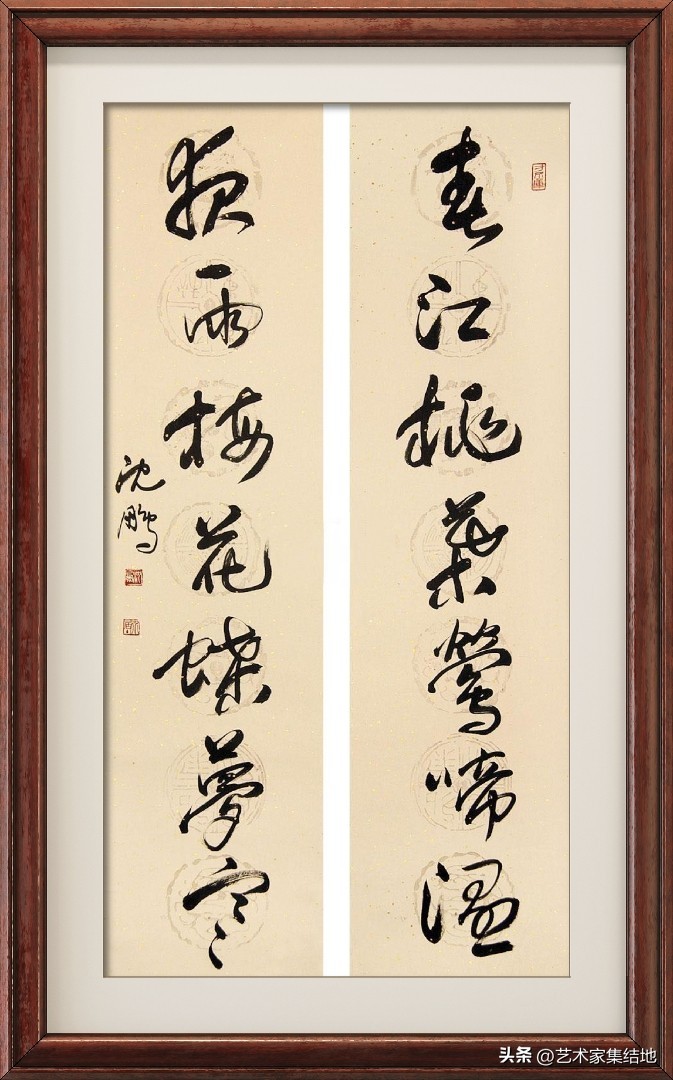 春江桃葉鶯啼濕
夜雨梅花蝶夢寒
沈鵬
头条 @艺术家集结地